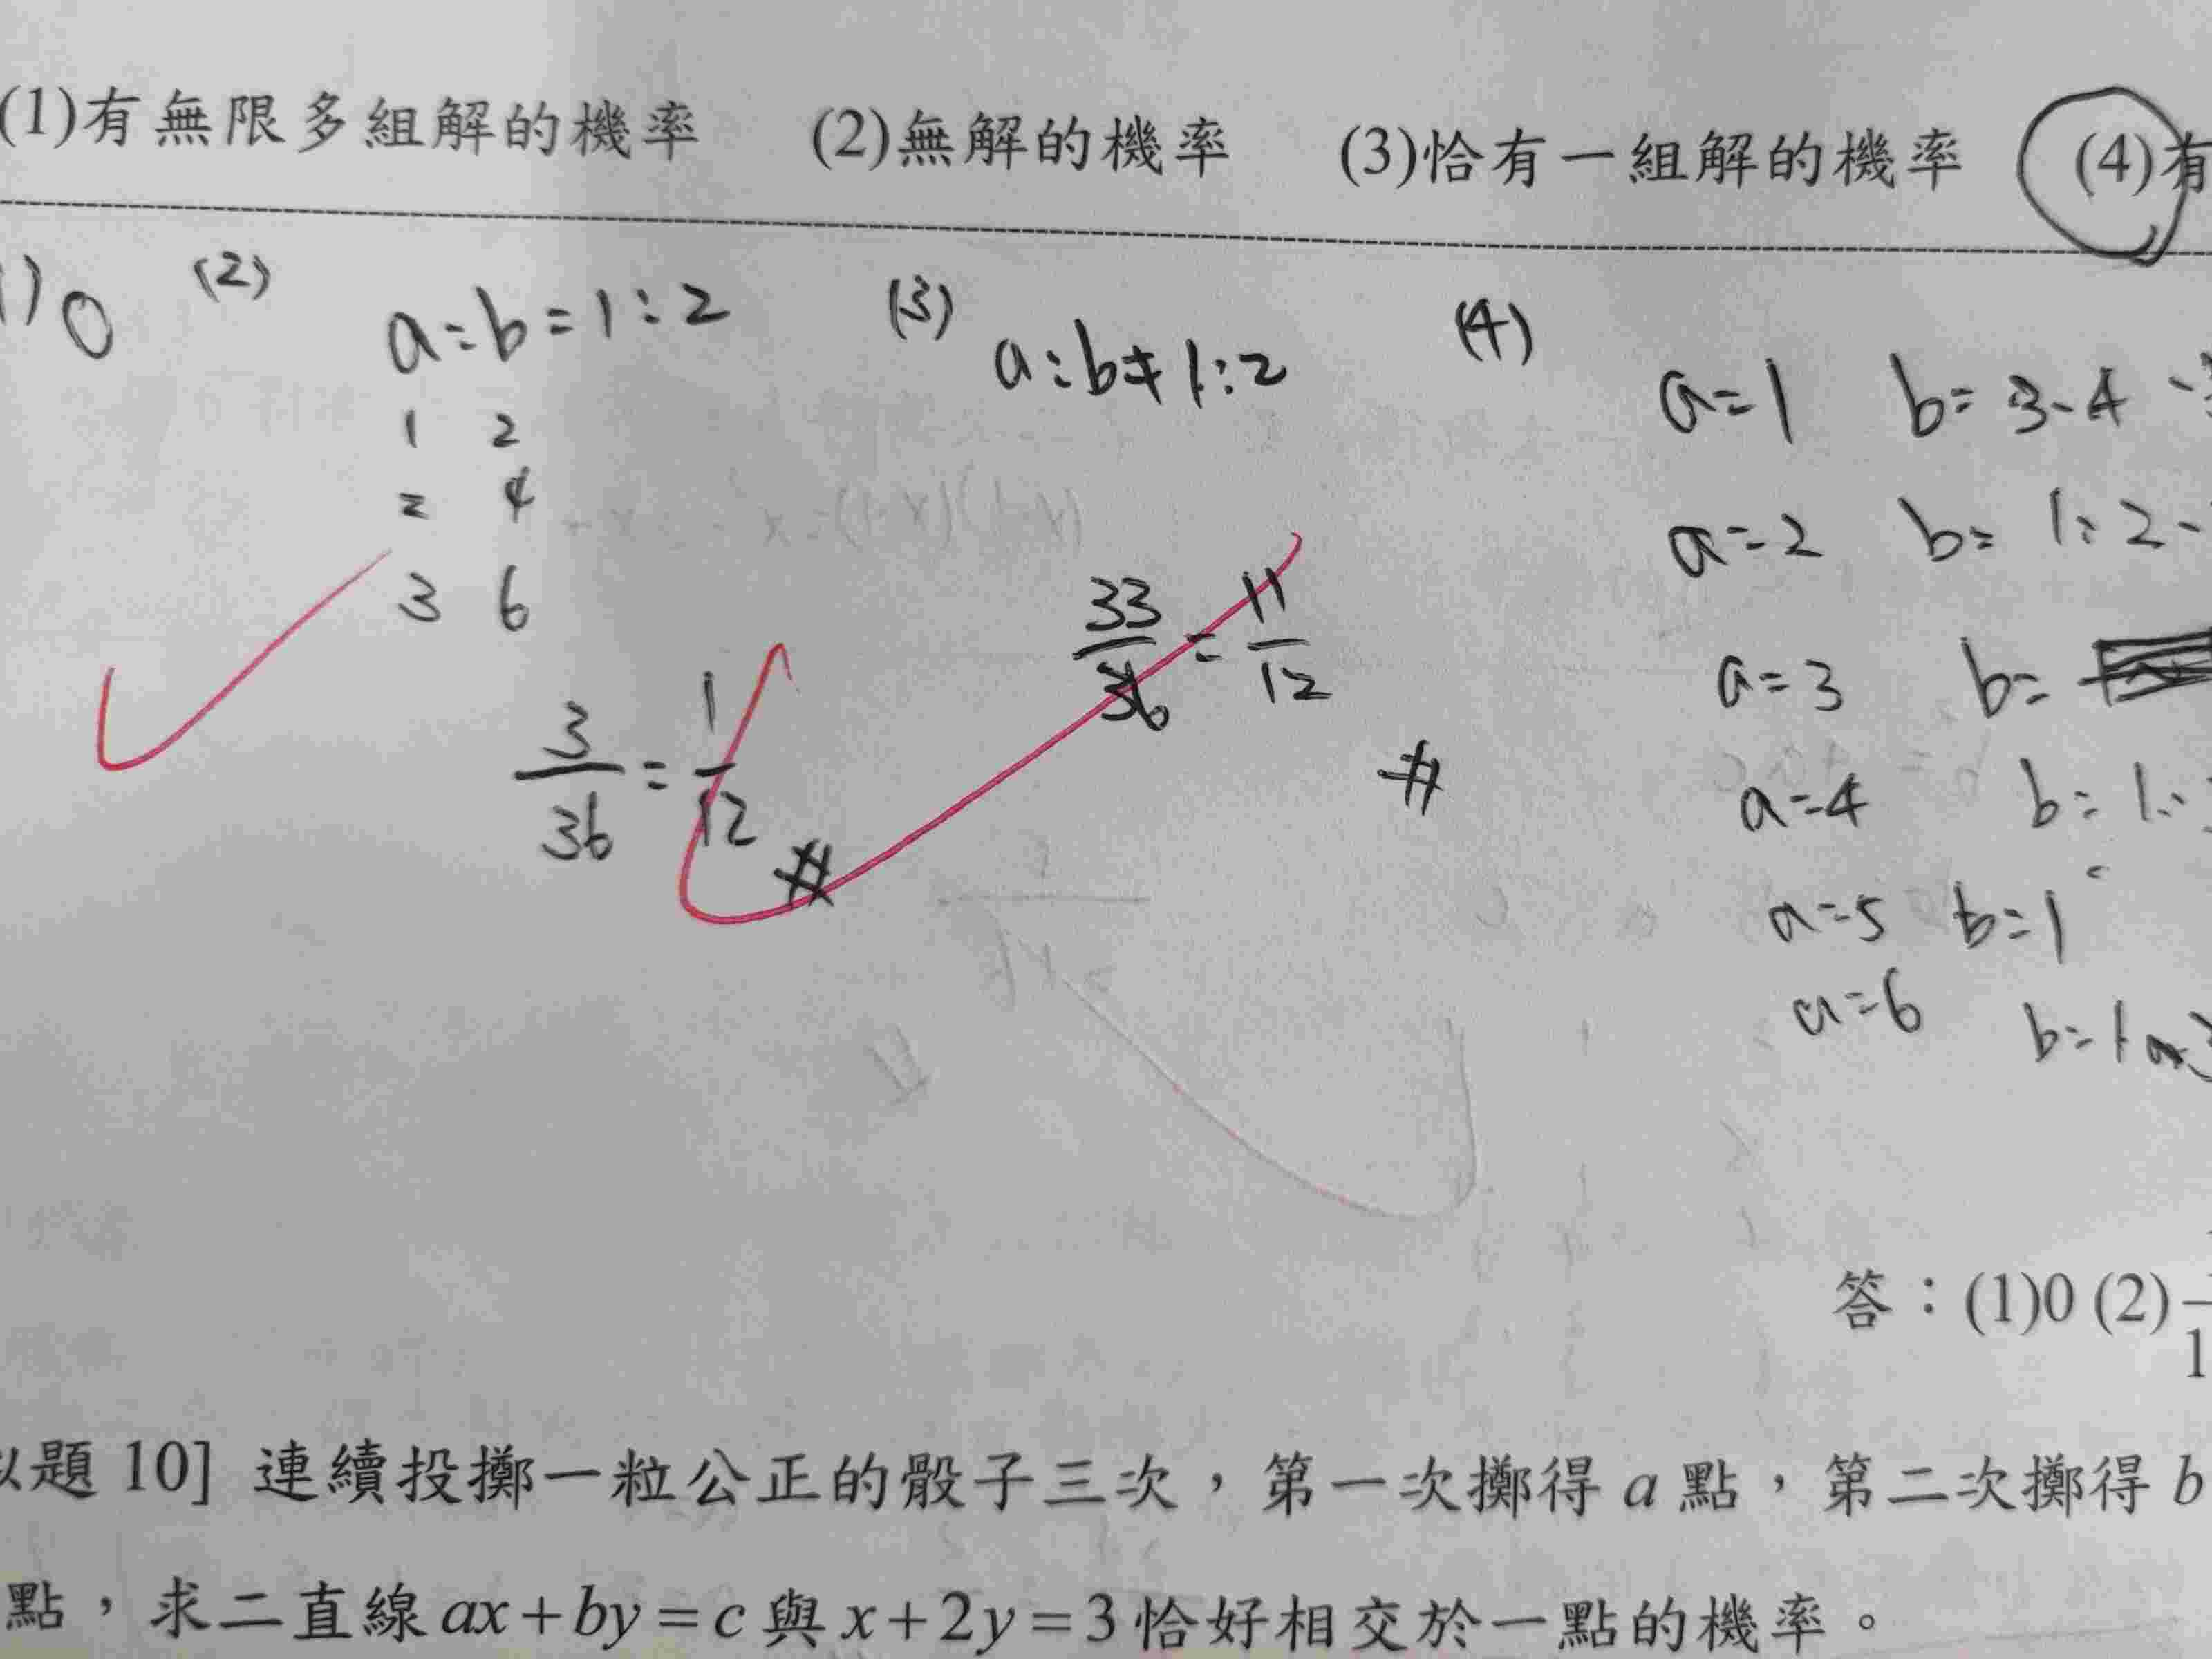 (1)有無限多組解的機率 (2)無解的機率 (3)恰有一組解的機率 (4)有
1) 0 (2) a:b=1:2 (3) a:b≠1:2 (4) a=1 b=3、4、
1 2
2 4
3 6
a=2 b=1、2、
a=3 b=
a=4 b=1、
a=5 b=1
a=6 b=1
3/36=1/12 #
33/36=11/12 #
答：(1)0 (2)
題 10] 連續投擲一粒公正的骰子三次，第一次擲得 a 點，第二次擲得 b
點，求二直線 ax+by=c 與 x+2y=3 恰好相交於一點的機率。